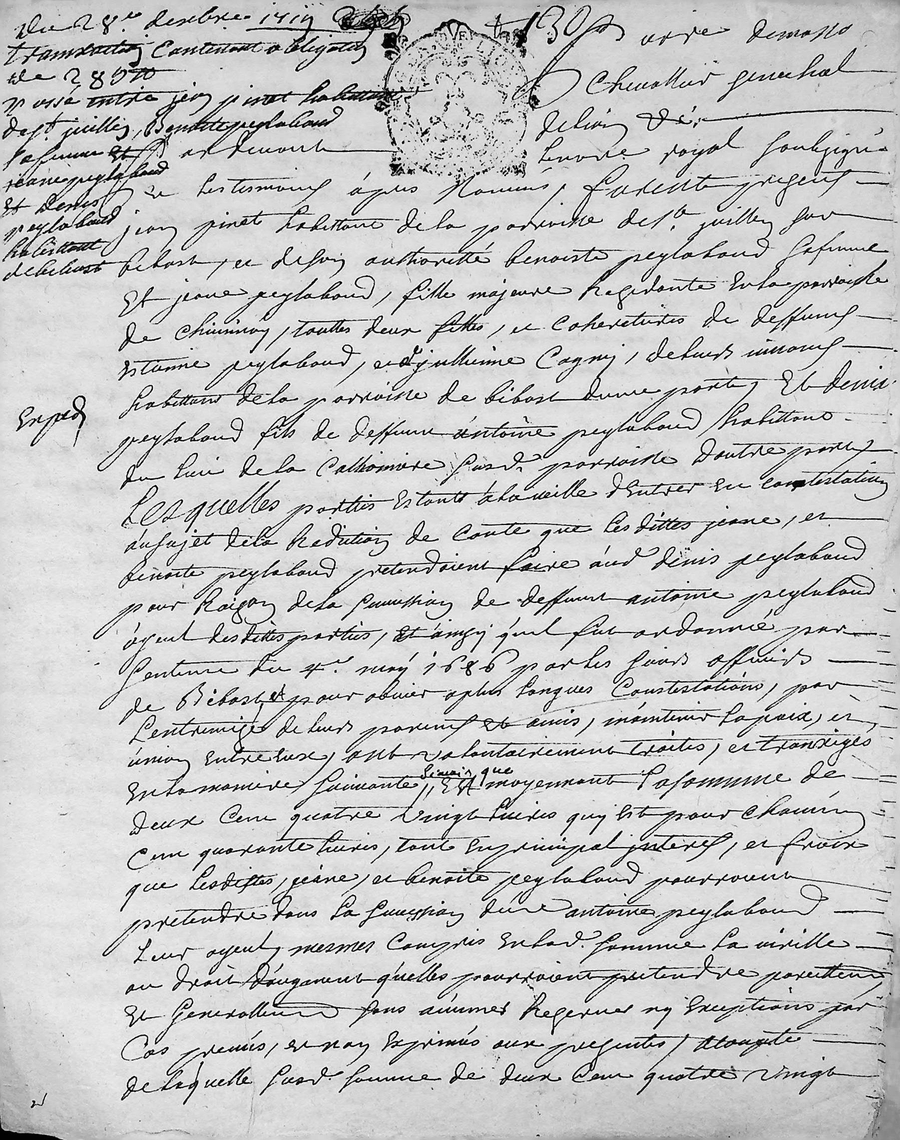 Du 28e decembre 1719
transaction Contenant obligation
de 280 lt
passé entre jean pinet habitant
de st jullien, Benoite peylaboud
sa femme Et
jeane peylaboud
Et Denis
peylaboud
habittant
de bibost
Exped
130
Chevallier Senechal
de lion
par devant
Le notre royal soubsigné
et les tesmoins apres Nommés, furent presents
jean pinet habittant de la parroisse de st jullien sur
bibost, et de son authorité benoiste peylaboud sa femme
Et jeane peylaboud, fille majeure Residante En la parroisse
de, touttes deux filles, et coheretieres de deffunts
Estienne peylaboud, et de guillemine Cagny, de leurs vivants
habittans de la parroisse de bibost d'une part, Et denis
peylaboud fils de deffunt antoine peylaboud habittant
du lieu de la susd. parroisse D'autre part
Lesquelles parties Estants a la veille d'Entrer En contestation
au sujet de la Redition de conte que lesdittes jeane, et
benoite peylaboud pretendoient faire aud denis peylaboud
pour Raison de la succession de deffunt antoine peylaboud
ayeul desdittes parties, Et ainsy qu'il fut ordonné par
sentence du 4e may 1686 par les sieurs officiers
de Bibost et pour obvier a plus longues Constestations, par
L'entremise de leurs parents Et amis, maintenir la paix, et
union Entre eux, ont volontairement traités, et transigés
En la maniere suivante, scavoir que moyennant la somme de
deux Cent quatre vingt livres quy Est pour chacune
Cent quarante livres, tout En principal interest, et fraix
que lesdittes, jeane, et benoite peylaboud pourroient
pretendre dans la succession dud antoine peylaboud
Leur ayeul, mesmes Compris En lad. somme la vielle
ou droit d'augment qu'elles pourroient pretendre
Et Generallement sans aucunes Reserves ny Exceptions par
Cas premis, et non Exprimés aux presentes, acompte
de laquelle susd. somme de deux Cent quatre vingt